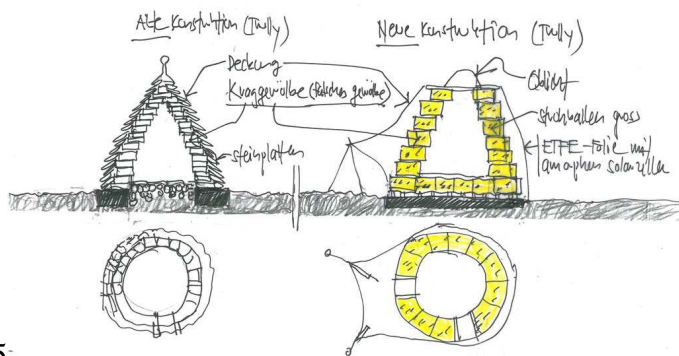 Alte Konstruktion (Trully)
Neue Konstruktion (Trully)
Deckung
Kraggewölbe (falsches gewölbe)
Steinplatten
Oblicht
Strohballen gross
ETFE-Folie mit
amorphen Solarzellen
5-